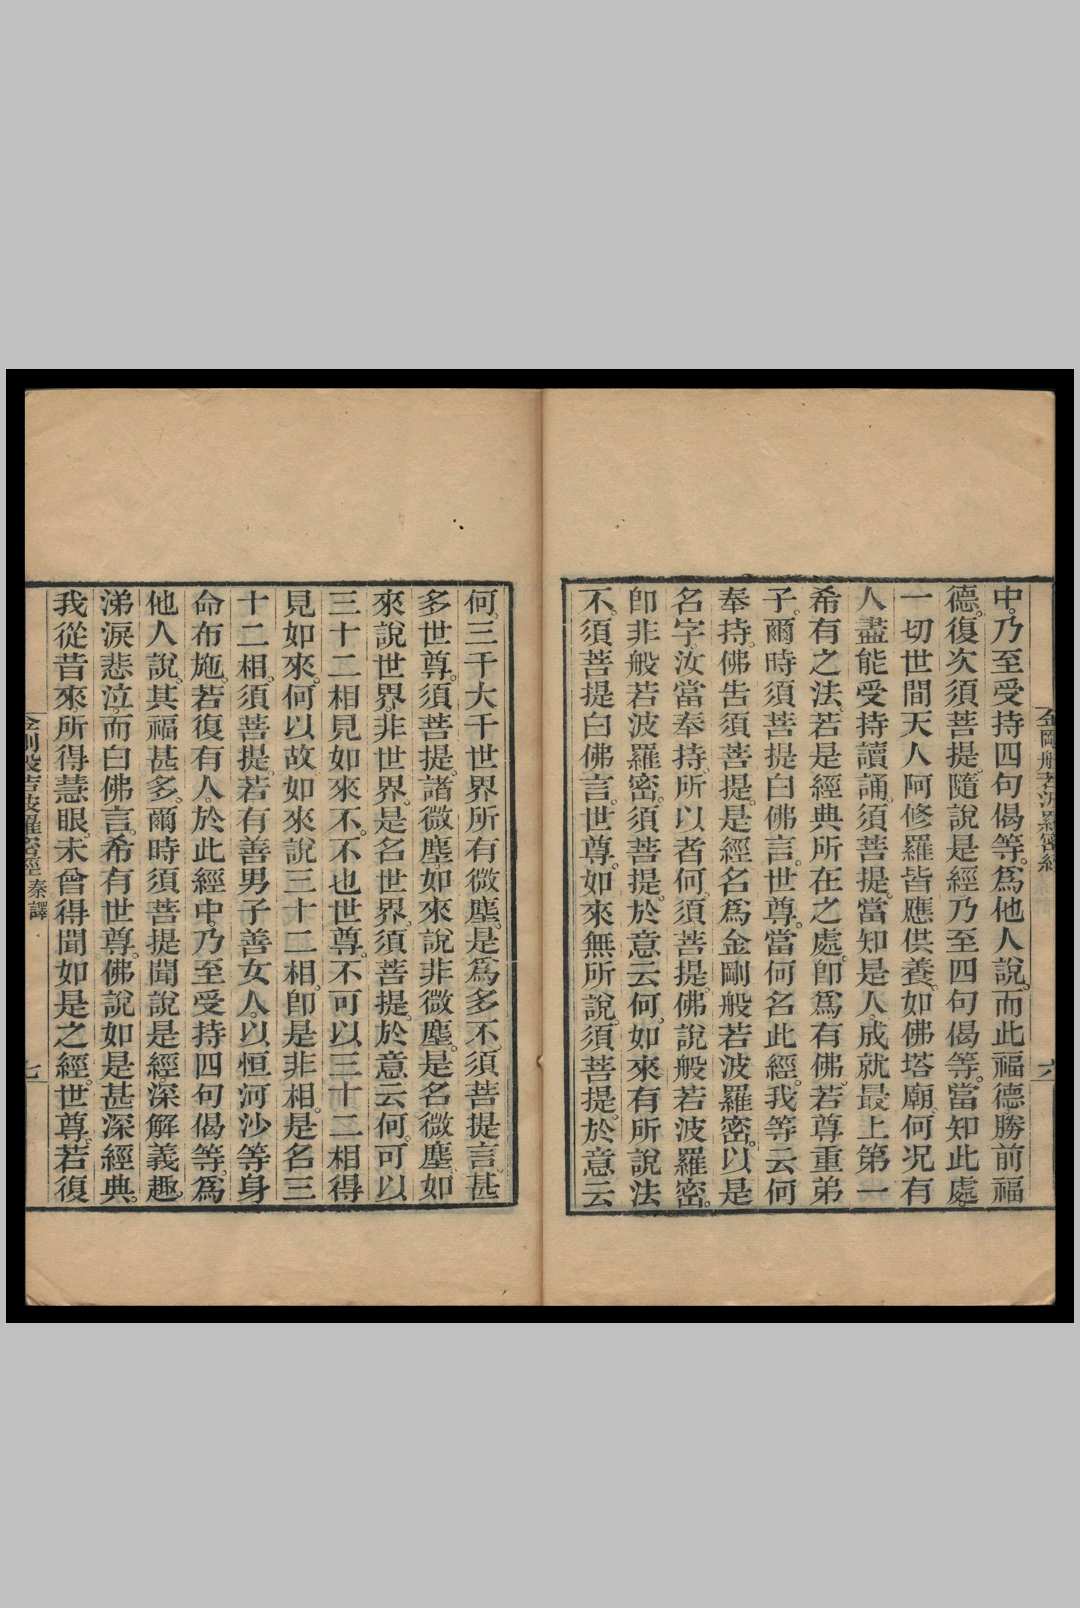 金剛般若波羅密經
六
中。乃至受持四句偈等。爲他人說。而此福德勝前福
德。復次須菩提。隨說是經乃至四句偈等。當知此處。
一切世間天人阿修羅皆應供養。如佛塔廟。何况有
人盡能受持讀誦。須菩提。當知是人。成就最上第一
希有之法。若是經典所在之處。卽爲有佛。若尊重弟
子。爾時須菩提白佛言。世尊。當何名此經。我等云何
奉持。佛告須菩提。是經名爲金剛般若波羅密。以是
名字。汝當奉持。所以者何。須菩提。佛說般若波羅密。
卽非般若波羅密。須菩提。於意云何。如來有所說法
不。須菩提白佛言。世尊。如來無所說。須菩提。於意云
何。三千大千世界所有微塵。是爲多不。須菩提言。甚
多世尊。須菩提。諸微塵。如來說非微塵。是名微塵。如
來說世界。非世界。是名世界。須菩提。於意云何。可以
三十二相見如來不。不也世尊。不可以三十二相得
見如來。何以故。如來說三十二相。卽是非相。是名三
十二相。須菩提。若有善男子善女人。以恒河沙等身
命布施。若復有人。於此經中。乃至受持四句偈等。爲
他人說。其福甚多。爾時須菩提聞說是經。深解義趣。
涕淚悲泣。而白佛言。希有世尊。佛說如是甚深經典。
我從昔來。所得慧眼。未曾得聞如是之經。世尊。若復
金剛般若波羅密經 秦譯
七